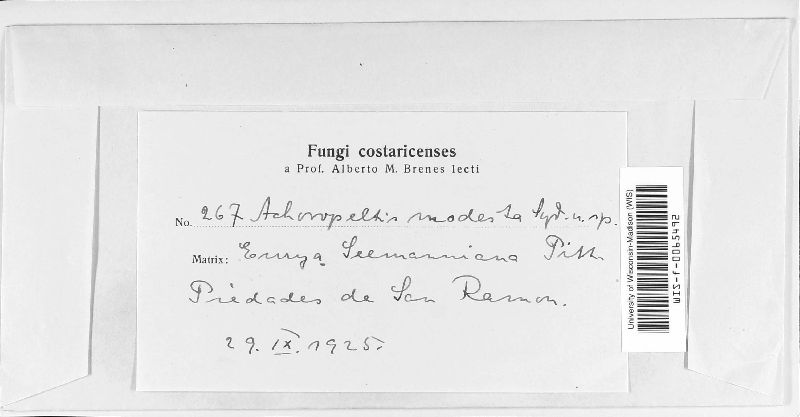 Fungi costaricenses
a Prof. Alberto M. Brenes lecti
No. 267 Achoropeltis modesta Syd. n. sp.
Matrix: Eurya Seemanniana Pitt
Piedades de San Ramon.
29. IX. 1925.
University of Wisconsin-Madison (WIS)
WIS-f-0065492